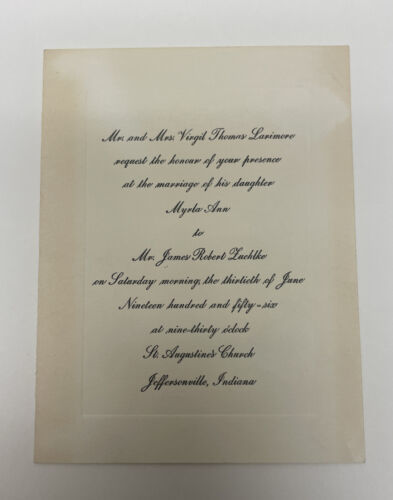 Mr. and Mrs. Virgil Thomas Larimore
request the honour of your presence
at the marriage of his daughter
Myrla Ann
to
Mr. James Robert Zuchtke
on Saturday morning, the thirtieth of June
Nineteen hundred and fifty-six
at nine-thirty o'clock
St. Augustine's Church
Jeffersonville, Indiana